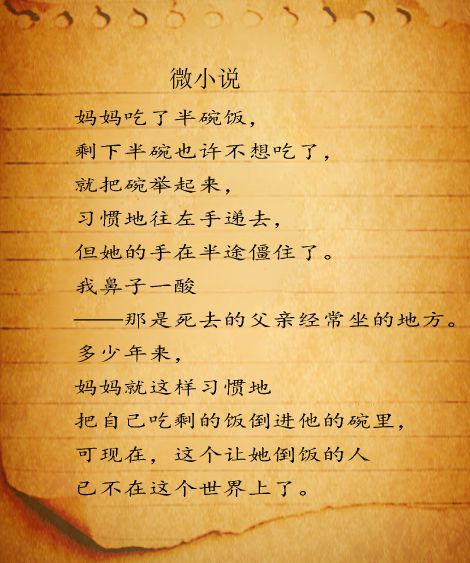 微小说
妈妈吃了半碗饭，
剩下半碗也许不想吃了，
就把碗举起来，
习惯地往左手递去，
但她的手在半途僵住了。
我鼻子一酸
——那是死去的父亲经常坐的地方。
多少年来，
妈妈就这样习惯地
把自己吃剩的饭倒进他的碗里，
可现在，这个让她倒饭的人
已不在这个世界上了。